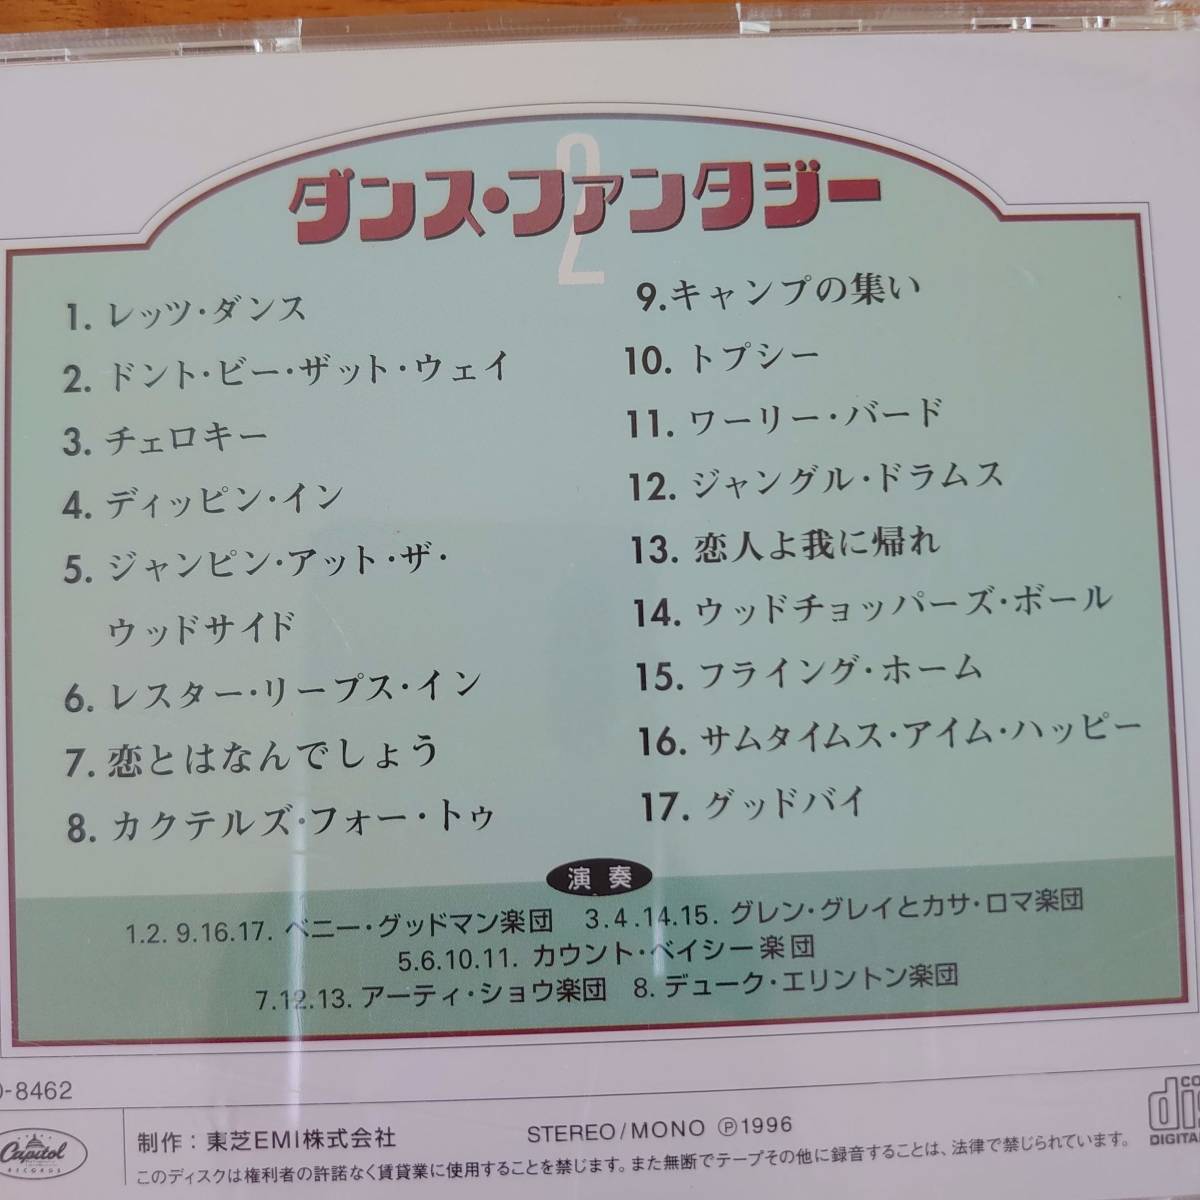 2
ダンス・ファンタジー
1. レッツ・ダンス
2. ドント・ビー・ザット・ウェイ
3. チェロキー
4. ディッピン・イン
5. ジャンピン・アット・ザ・
ウッドサイド
6. レスター・リープス・イン
7. 恋とはなんでしょう
8. カクテルズ・フォー・トゥ
9. キャンプの集い
10. トプシー
11. ワーリー・バード
12. ジャングル・ドラムス
13. 恋人よ我に帰れ
14. ウッドチョッパーズ・ボール
15. フライング・ホーム
16. サムタイムス・アイム・ハッピー
17. グッドバイ
演奏
1.2. 9.16.17. ベニー・グッドマン楽団 3.4.14.15. グレン・グレイとカサ・ロマ楽団
5.6.10.11. カウント・ベイシー楽団
7.12.13. アーティ・ショウ楽団 8. デューク・エリントン楽団
-8462
Capitol
RECORDS
制作：東芝EMI株式会社
STEREO/MONO Ⓟ1996
このディスクは権利者の許諾なく賃貸業に使用することを禁じます。また無断でテープその他に録音することは、法律で禁じられています。
CO
dis
DIGITAL